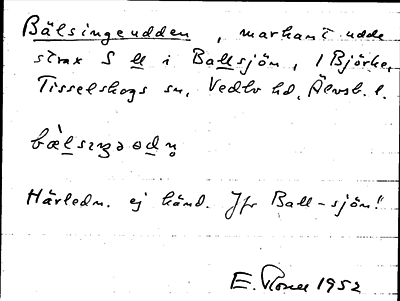 Bälsingeudden, markant udde
strax S ll i Ballsjön, 1 Björke,
Tisselskogs sn, Vedbo hd, Älvsb. l.
Härledn. ej känd. Jfr Ball-sjön!
E. 1952